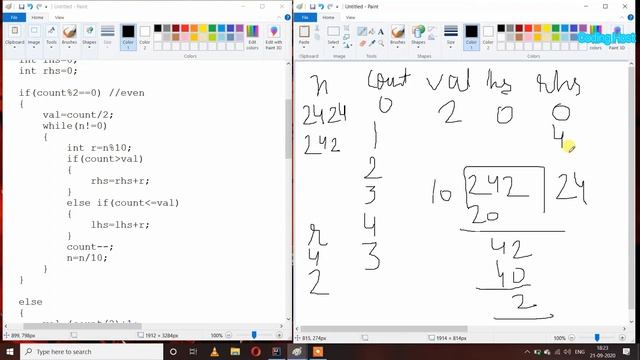 Untitled - Paint
File Home View
Clipboard Image Tools Brushes Shapes Size Color 1 Color 2 Colors Edit with Paint 3D
int lhs=0;
int rhs=0;
if(count%2==0) //even
{
val=count/2;
while(n!=0)
{
int r=n%10;
if(count>val)
{
rhs=rhs+r;
}
else if(count<=val)
{
lhs=lhs+r;
}
count--;
n=n/10;
}
}
else
{
899, 798px 1912 × 3284px 100%
Untitled - Paint
File Home View
Clipboard Image Tools Brushes Shapes Size Color 1 Color 2 Colors Edit with Paint 3D
Coding Host
n count val lhs rhs
2424 0 2 0 0
242 1 4
2
3
4
3
r
4
2
10 242 24
20
42
40
2
815, 274px 1914 × 814px 100%
Type here to search
ENG 18:23
21-09-2020